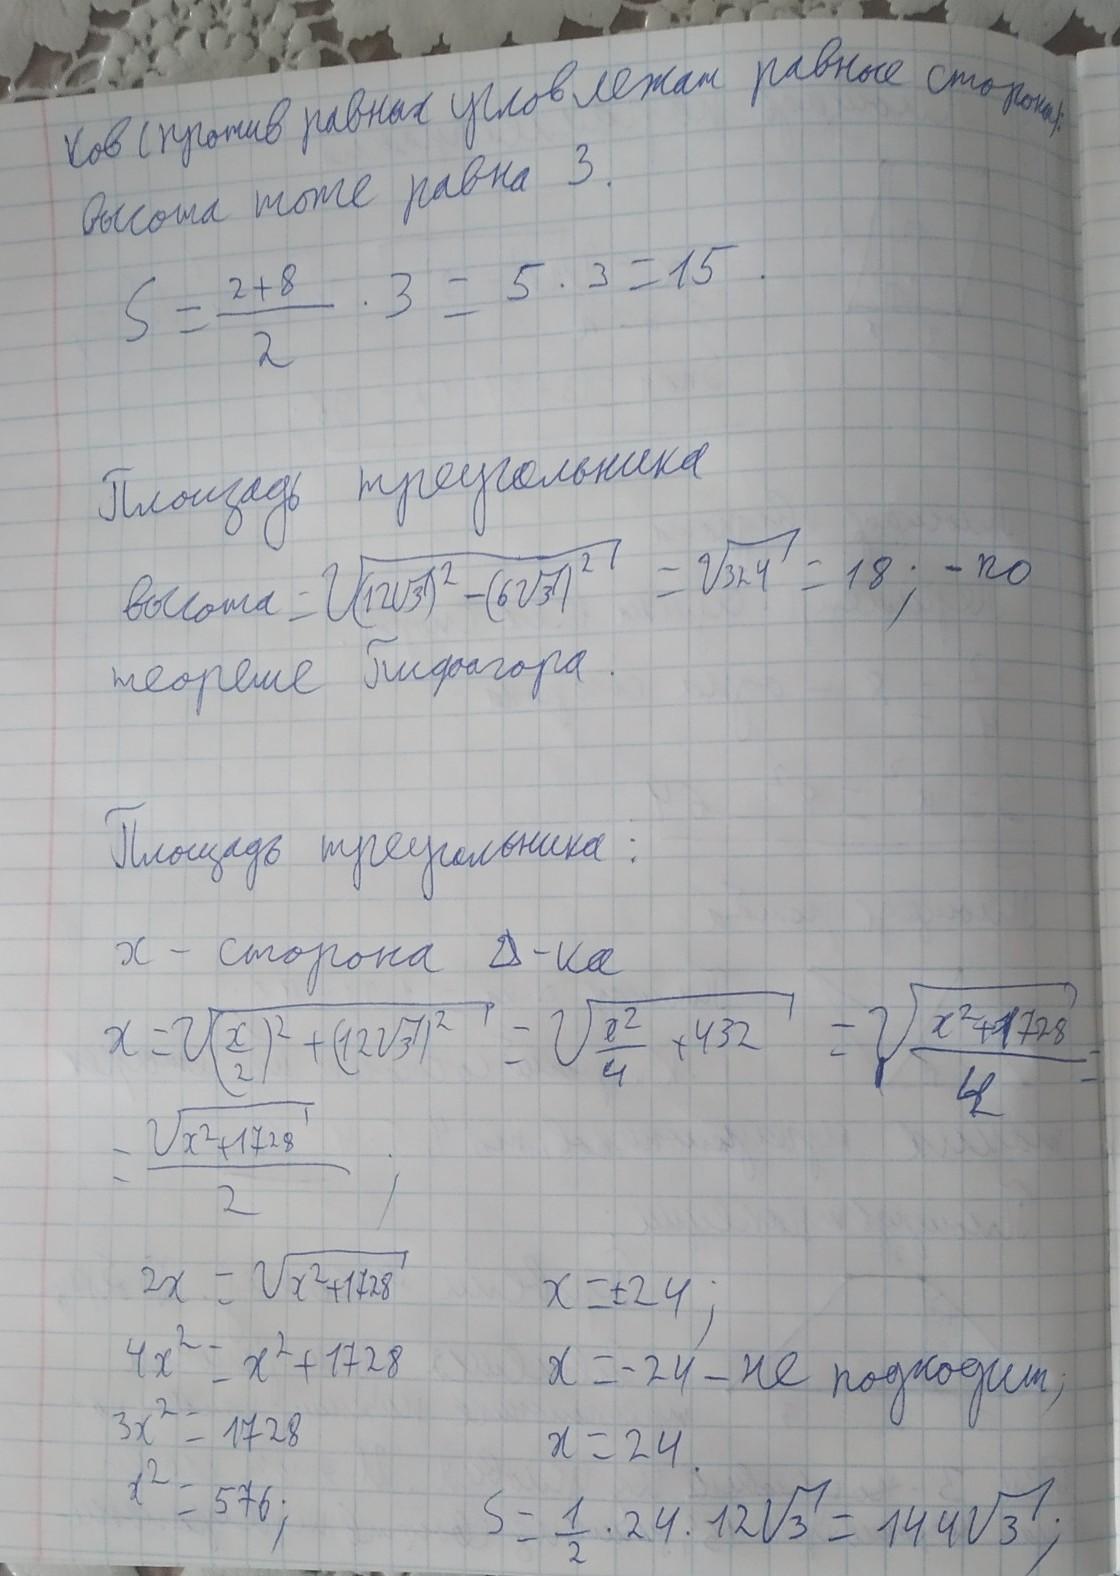 ков (против равных углов лежат равные стороны).
высота тоже равна 3.
S = (2+8)/2 · 3 = 5 · 3 = 15.
Площадь треугольника
высота = √((12√3)² - (6√3)²) = √324 = 18; - по
теореме Пифагора.
Площадь треугольника:
x - сторона Δ-ка
x = √((x/2)² + (12√3)²) = √(x²/4 + 432) = √((x²+1728)/4) =
= √(x²+1728)/2 ;
2x = √(x²+1728)
4x² = x² + 1728
3x² = 1728
x² = 576;
x = ±24;
x = -24 - не подходит;
x = 24.
S = 1/2 · 24 · 12√3 = 144√3;